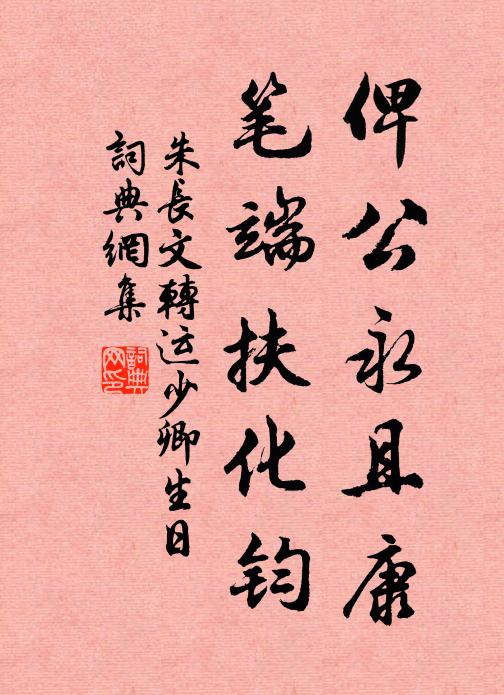 俾公永且康
笔端扶化钧
朱長文轉运少卿生日
詞典網集
詞典网印